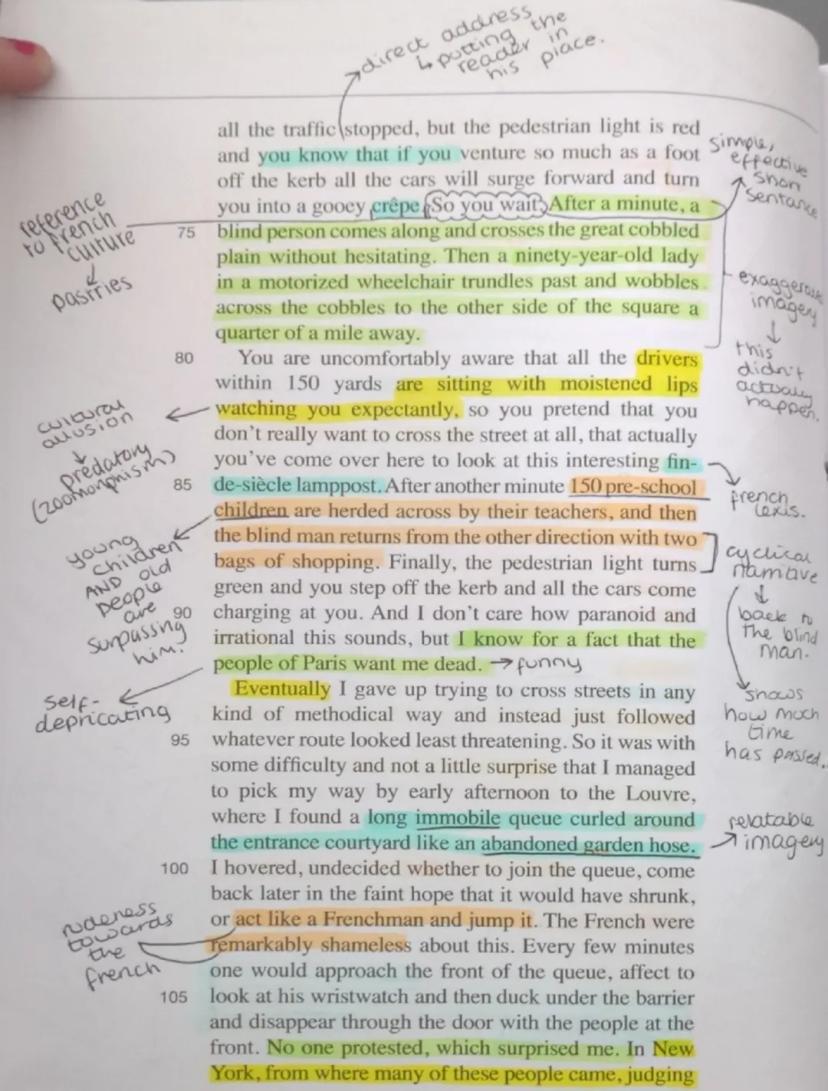 direct address
↳ putting the
reader in
his place.
all the traffic stopped, but the pedestrian light is red
and you know that if you venture so much as a foot
off the kerb all the cars will surge forward and turn
you into a gooey crêpe. So you wait. After a minute, a
75 blind person comes along and crosses the great cobbled
plain without hesitating. Then a ninety-year-old lady
in a motorized wheelchair trundles past and wobbles
across the cobbles to the other side of the square a
quarter of a mile away.
80 You are uncomfortably aware that all the drivers
within 150 yards are sitting with moistened lips
watching you expectantly, so you pretend that you
don't really want to cross the street at all, that actually
you've come over here to look at this interesting fin-
85 de-siècle lamppost. After another minute 150 pre-school
children are herded across by their teachers, and then
the blind man returns from the other direction with two
bags of shopping. Finally, the pedestrian light turns
green and you step off the kerb and all the cars come
90 charging at you. And I don't care how paranoid and
irrational this sounds, but I know for a fact that the
people of Paris want me dead. → funny
Eventually I gave up trying to cross streets in any
kind of methodical way and instead just followed
95 whatever route looked least threatening. So it was with
some difficulty and not a little surprise that I managed
to pick my way by early afternoon to the Louvre,
where I found a long immobile queue curled around
the entrance courtyard like an abandoned garden hose.
100 I hovered, undecided whether to join the queue, come
back later in the faint hope that it would have shrunk,
or act like a Frenchman and jump it. The French were
remarkably shameless about this. Every few minutes
one would approach the front of the queue, affect to
105 look at his wristwatch and then duck under the barrier
and disappear through the door with the people at the
front. No one protested, which surprised me. In New
York, from where many of these people came, judging
reference
to french
culture
↓
pastries
cultural
allusion
↓
predatory
(zoomorphism)
young
children
AND old
people
are
surpassing
him.
self-
depricating
rudeness
towards
the
french
simple,
effective
short
sentance
imagery
↓
this
didn't
actually
happen.
french
lexis.
cyclical
narrative
↓
back to
the blind
man.
shows
how much
time
has passed.
relatable
imagery